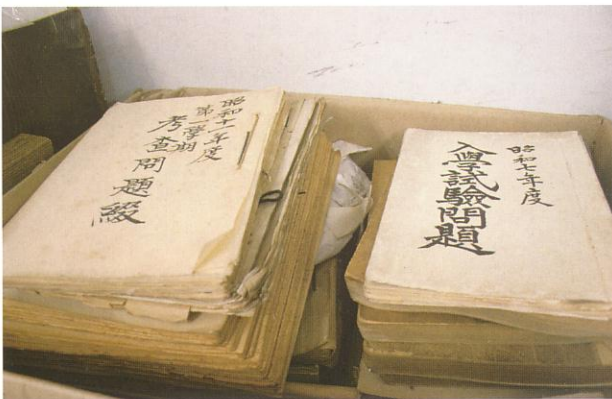 昭和十一年度
第一学期
考査問題綴
昭和七年度
入學試驗問題